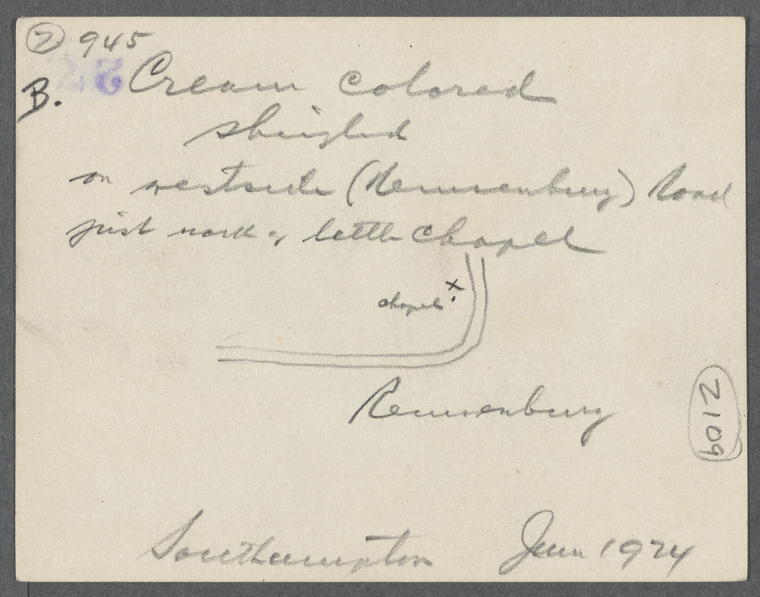 2 945
B. Cream colored
shingled
on westside (Remsenburg) Road
just north of little Chapel
x
chapel
Remsenburg
2109
Southampton June 1924